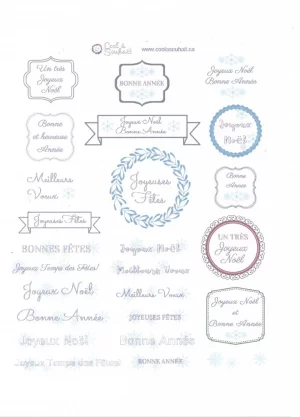 Cool & Souhait
www.coolsouhait.ca
Un très
Joyeux
Noël
BONNE ANNÉE
Joyeux Noël
Bonne
Année
Bonne
et heureuse
Année
Joyeux Noël
Bonne Année
Joyeux
Noël
Meilleurs
Voeux
Joyeuses
Fêtes
Bonne
Année
Joyeuses Fêtes
BONNES FÊTES
Joyeux Noël
UN TRÈS
Joyeux
Noël
Joyeux Temps des Fêtes!
Meilleurs Voeux
Joyeux Noël
Meilleurs Voeux
Joyeux Noël
et
Bonne
Année
Bonne Année
JOYEUSES FÊTES
Joyeux Noël
Bonne Année
Joyeux Temps des Fêtes!
BONNE ANNÉE